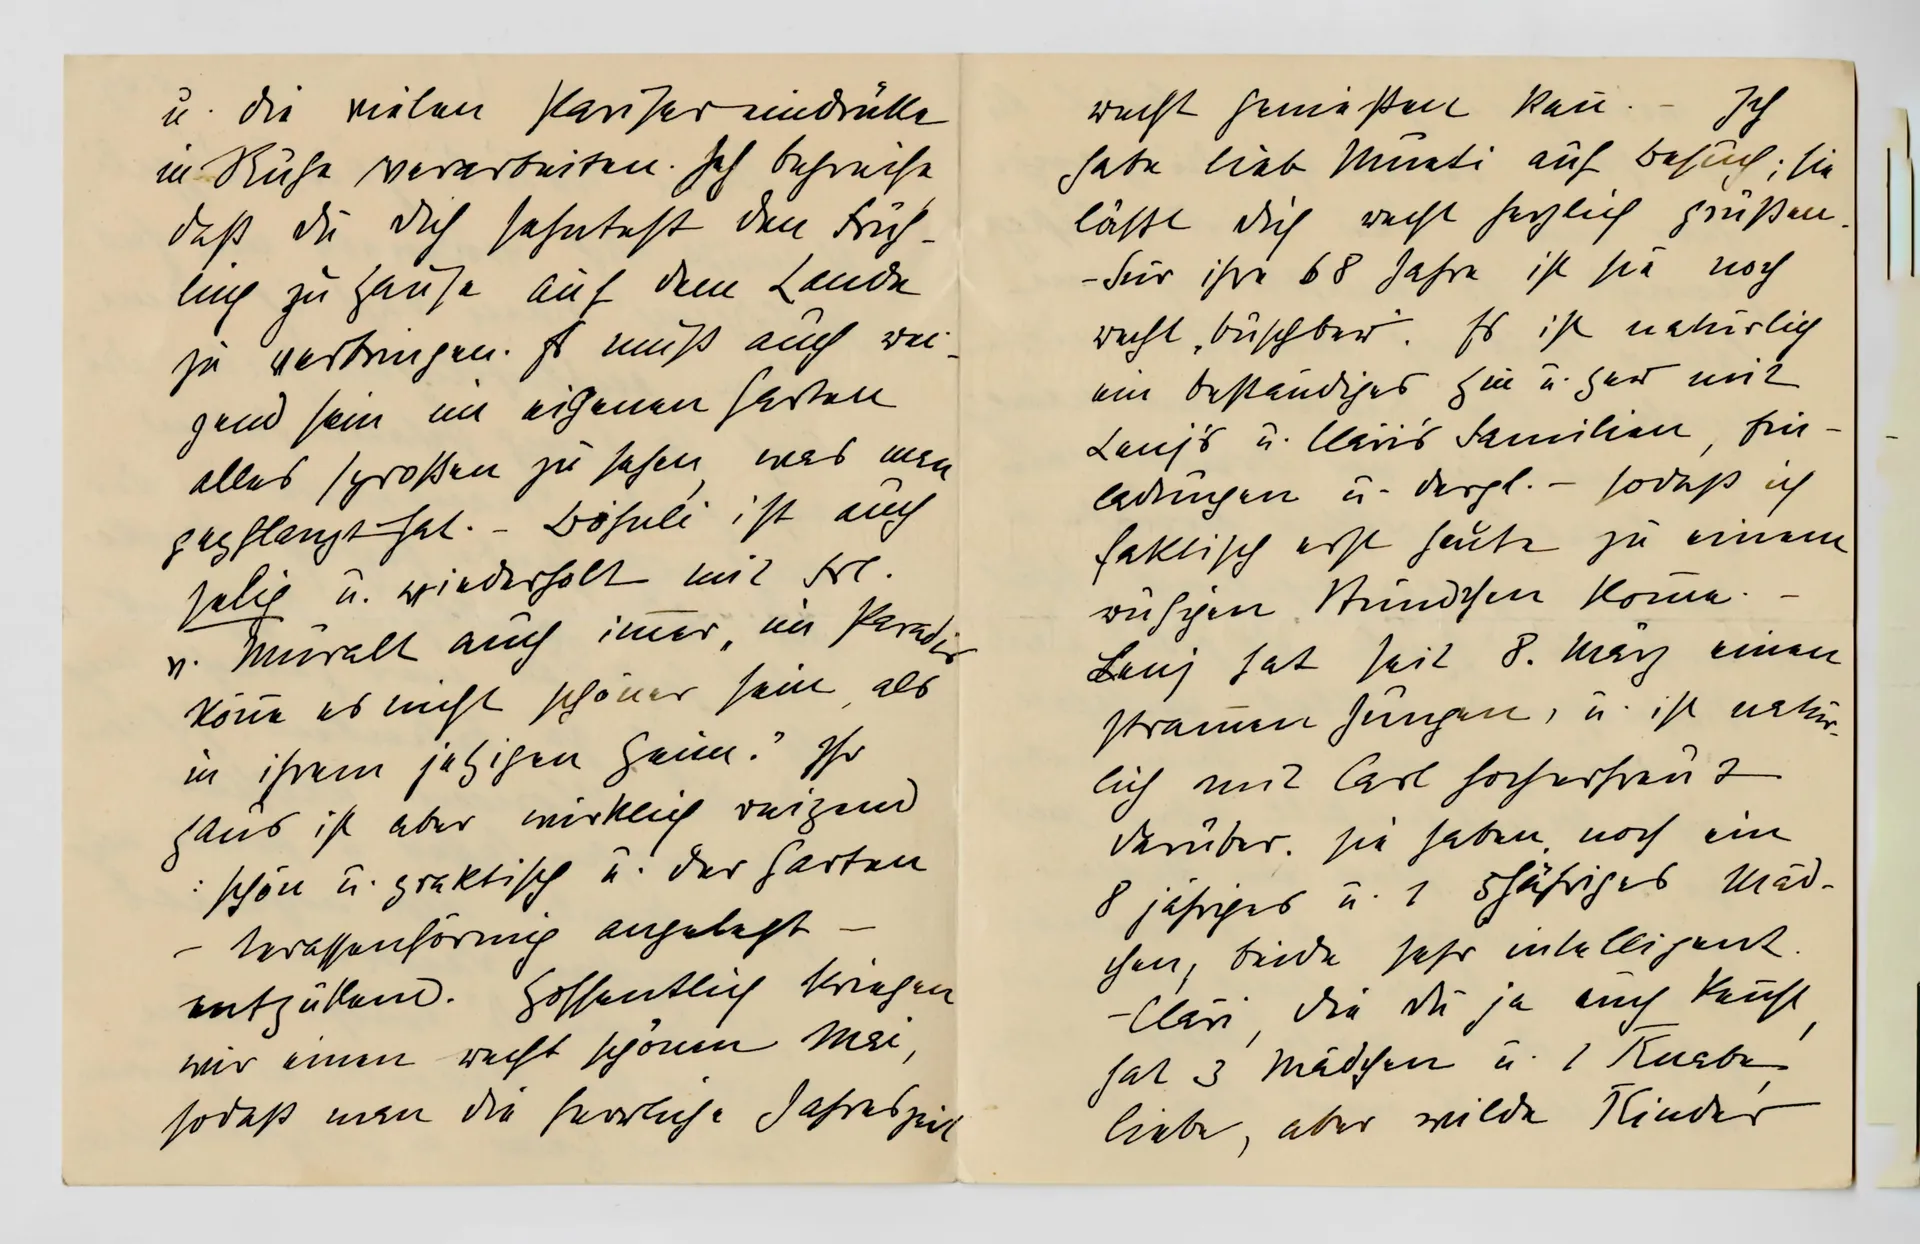 u. die vielen Pariser eindrücke
in Ruhe verarbeiten. Ich begreife
daß du dich sehntest den Früh-
ling zu Hause auf dem Lande
zu verbringen. Es muß auch rei-
zend sein im eigenen Garten
alles sprossen zu sehen, was man
gepflanzt hat. – Böhnli ist auch
selig u. wiederholt mit Frl.
v. Muralt auch immer „im Paradis
könne es nicht schöner sein, als
in ihrem jetzigen Heim." Ihr
Haus ist aber wirklich reizend
: schön u. praktisch u. der Garten
– terassenförmig angelegt –
entzückend. Hoffentlich kriegen
wir einen recht schönen Mai,
sodaß man die herrliche Jahreszeit
recht genießen kann. – Ich
habe lieb Mueti auf Besuch; sie
läßt dich recht herzlich grüßen.
– Für ihre 68 Jahre ist sie noch
recht „buschber". Es ist natürlich
ein beständiges Hin u. Her mit
Lenj's u. Cläri's Familien, Ein-
ladungen u. dergl. – sodaß ich
faktisch erst heute zu einem
ruhigen Stündchen komme. –
Lenj hat seit 8. März einen
strammen Jungen, u. ist natür-
lich mit Carl hocherfreut
darüber. sie haben noch ein
8 jähriges u. 1 5jähriges Mäd-
chen, beide sehr intelligent.
– Cläri, die du ja auch kennst,
hat 3 Mädchen u. 1 Knabe,
liebe, aber wilde Kinder